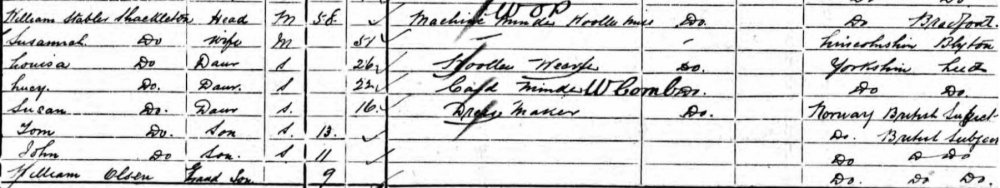 William Stables Shackleton Head M 58 Machine Minder Woollen Mill Do. Do Bradford.
W O P
Susannah Do Wife M 51 Lincolnshire Blyton
Louisa Do Daur S 26 Woollen Weaver Do. Yorkshire Leeds
Lucy. Do. Daur. S. 22 Card Minder W Comb Do. Do Do.
Susan Do. Daur S. 16 Dress Maker Do. Norway British Subject
Tom Do. Son S. 13 Do. British Subject
John Do Son. S 11 Do Do Do
William Olsen Grand Son. 9 Do. Do. Do.